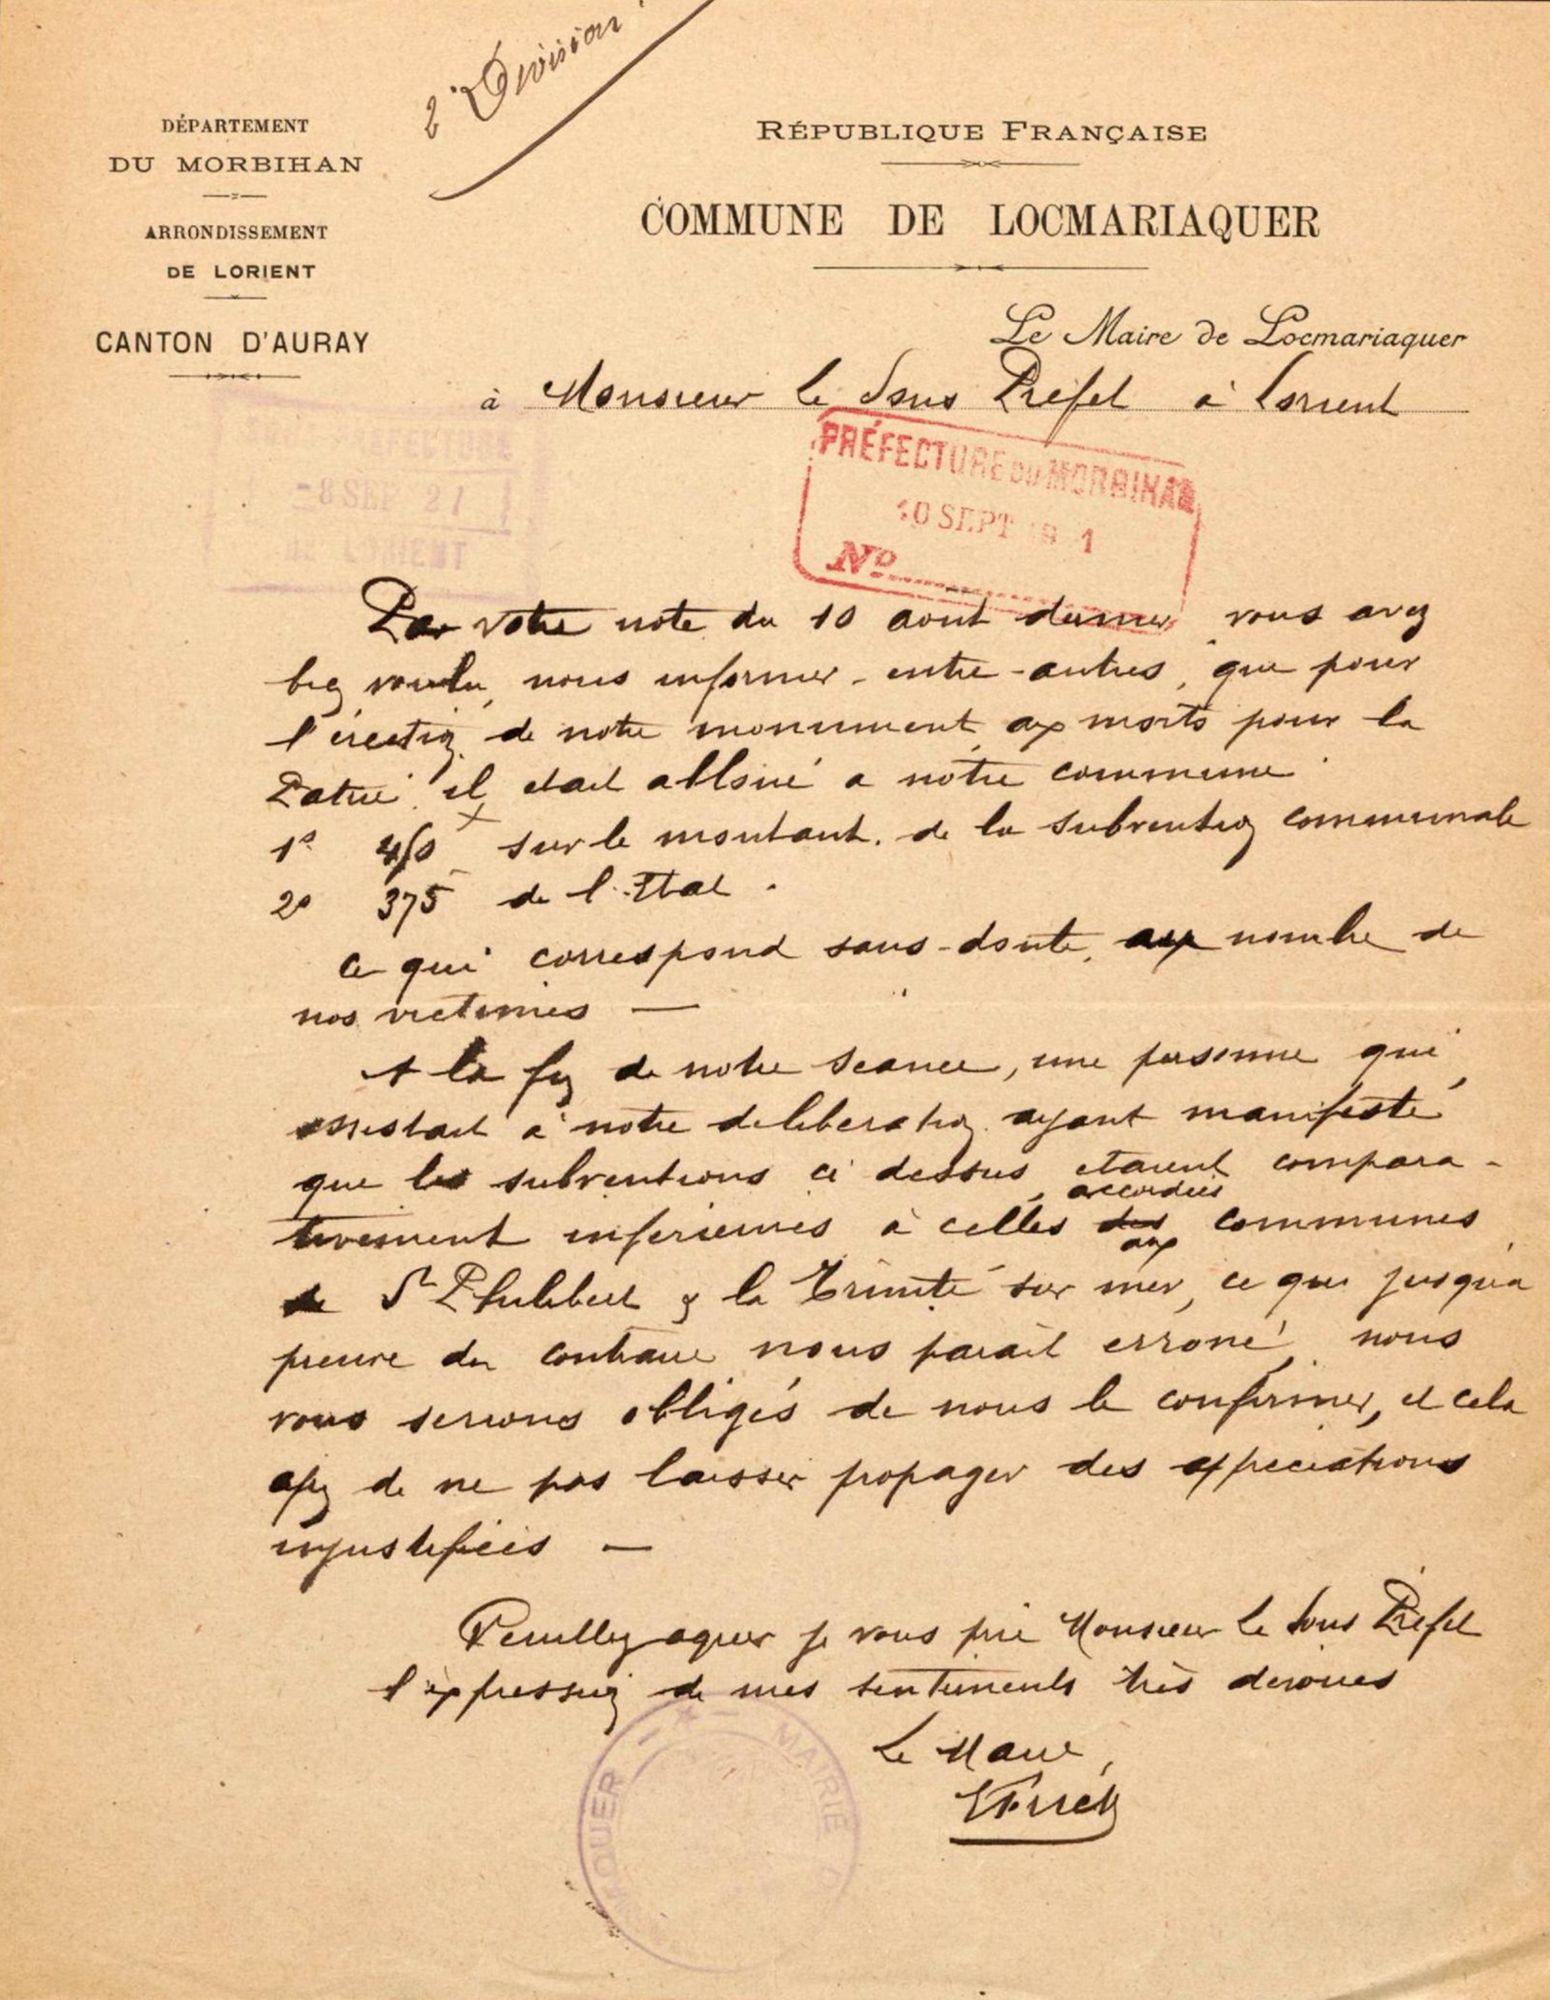 2e Division
DÉPARTEMENT
DU MORBIHAN
ARRONDISSEMENT
DE LORIENT
CANTON D'AURAY
RÉPUBLIQUE FRANÇAISE
COMMUNE DE LOCMARIAQUER
Le Maire de Locmariaquer
à Monsieur le Sous Préfet à Lorient
PRÉFECTURE
-8 SEPT 21
DE LORIENT
PRÉFECTURE DU MORBIHAN
10 SEPT 19 1
No
Par votre note du 10 aout dernier vous avez
bien voulu, nous informer - entre-autres, que pour
l'érection de notre monument aux morts pour la
Patrie il etait alloué a notre commune
1° 4% sur le montant de la subvention communale
2° 375 de l'Etat.
ce qui correspond sans-doute, au nombre de
nos victimes —
A la fin de notre seance, une personne qui
assistait à notre deliberation ayant manifesté
que les subventions ci dessus etaient compara-
tivement inferieures à celles des accordées aux communes
de St Philibert & la Trinité sur mer, ce que jusqu'a
preuve du contraire nous parait erroné, nous
vous serions obligés de nous le confirmer, et cela
afin de ne pas laisser propager des appreciations
injustifiées —
Veuillez agreer je vous prie Monsieur le Sous Préfet
l'expression de mes sentiments très devoués
Le Maire,
MAIRIE D
QUER